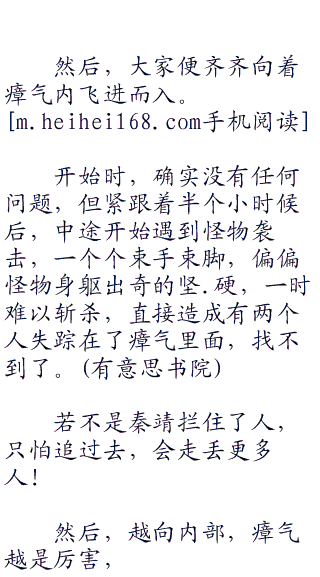 然后，大家便齐齐向着
瘴气内飞进而入。
[m.heihei168.com手机阅读]
开始时，确实没有任何
问题，但紧跟着半个小时候
后，中途开始遇到怪物袭
去，一个个束手束脚，偏偏
怪物身躯出奇的坚.硬，一时
难以斩杀，直接造成有两个
人失踪在了瘴气里面，找不
到了。(有意思书院)
若不是秦靖拦住了人，
只怕追过去，会走丢更多
人！
然后，越向内部，瘴气
越是厉害，